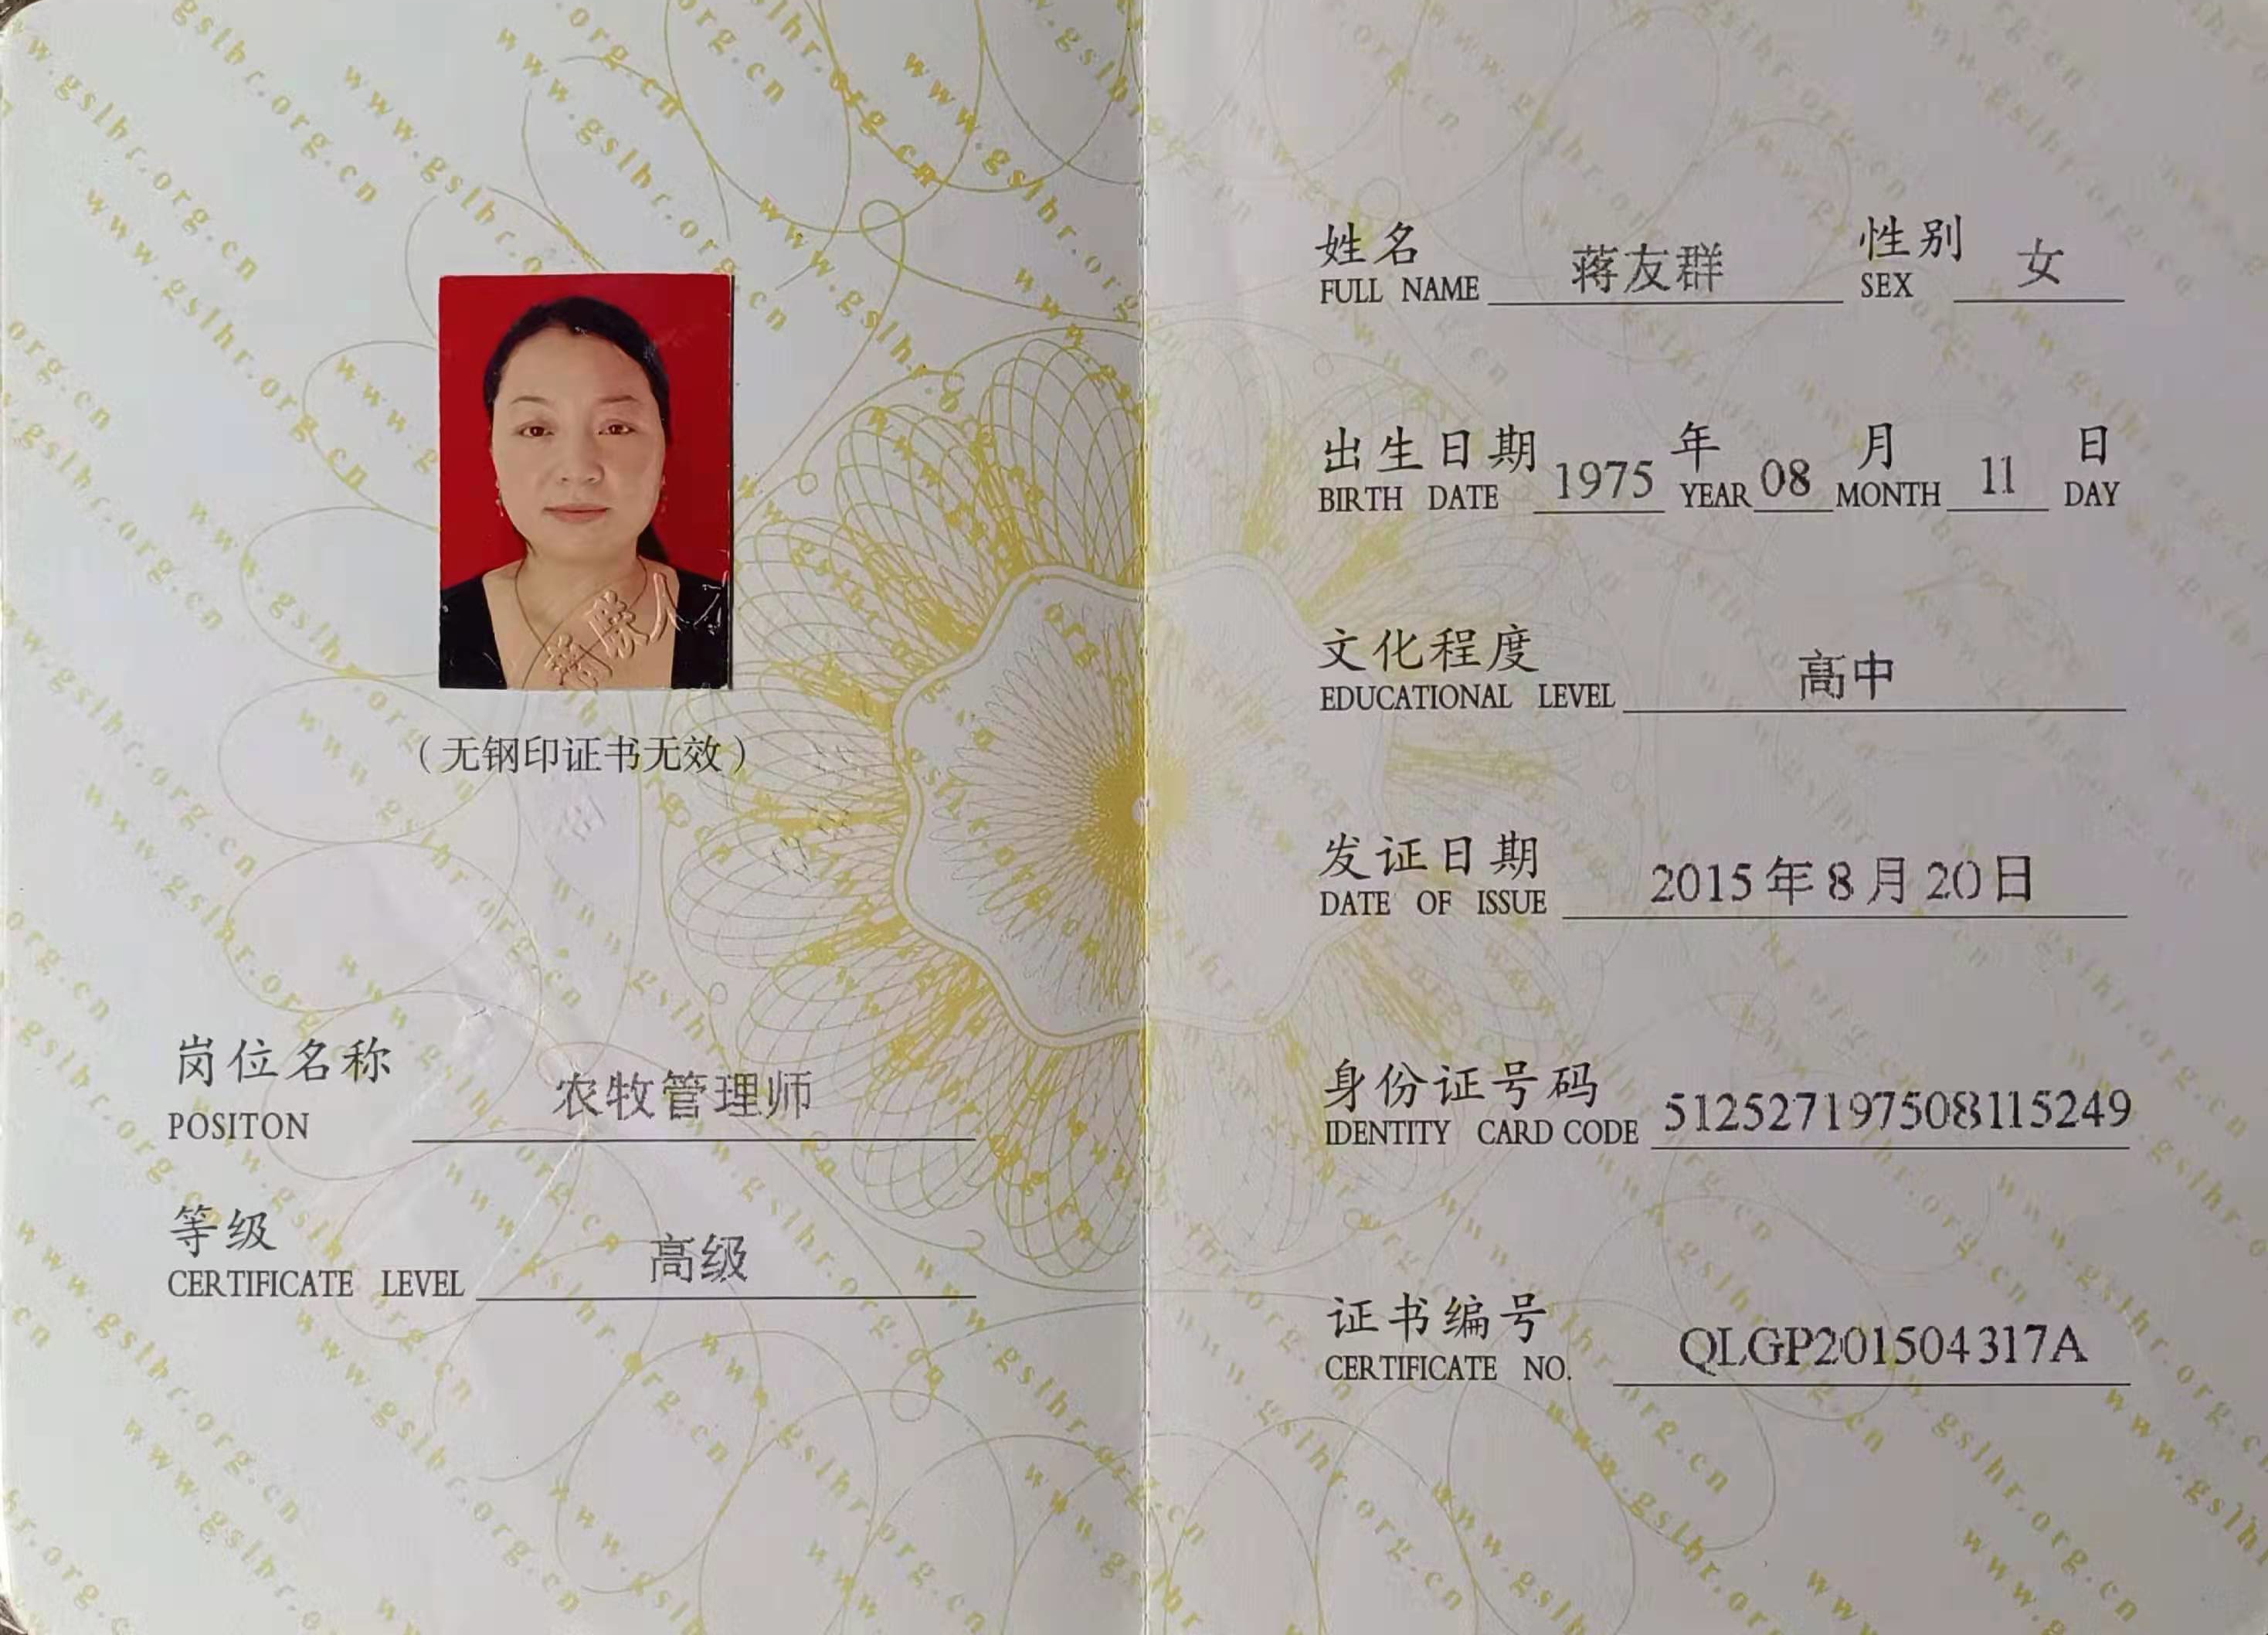 （无钢印证书无效）
岗位名称 农牧管理师
POSITON
等级 高级
CERTIFICATE LEVEL
姓名 蒋友群 性别 女
FULL NAME SEX
出生日期 1975 年 08 月 11 日
BIRTH DATE YEAR MONTH DAY
文化程度 高中
EDUCATIONAL LEVEL
发证日期 2015年8月20日
DATE OF ISSUE
身份证号码 512527197508115249
IDENTITY CARD CODE
证书编号 QLGP201504317A
CERTIFICATE NO.
www.gslhr.org.cn